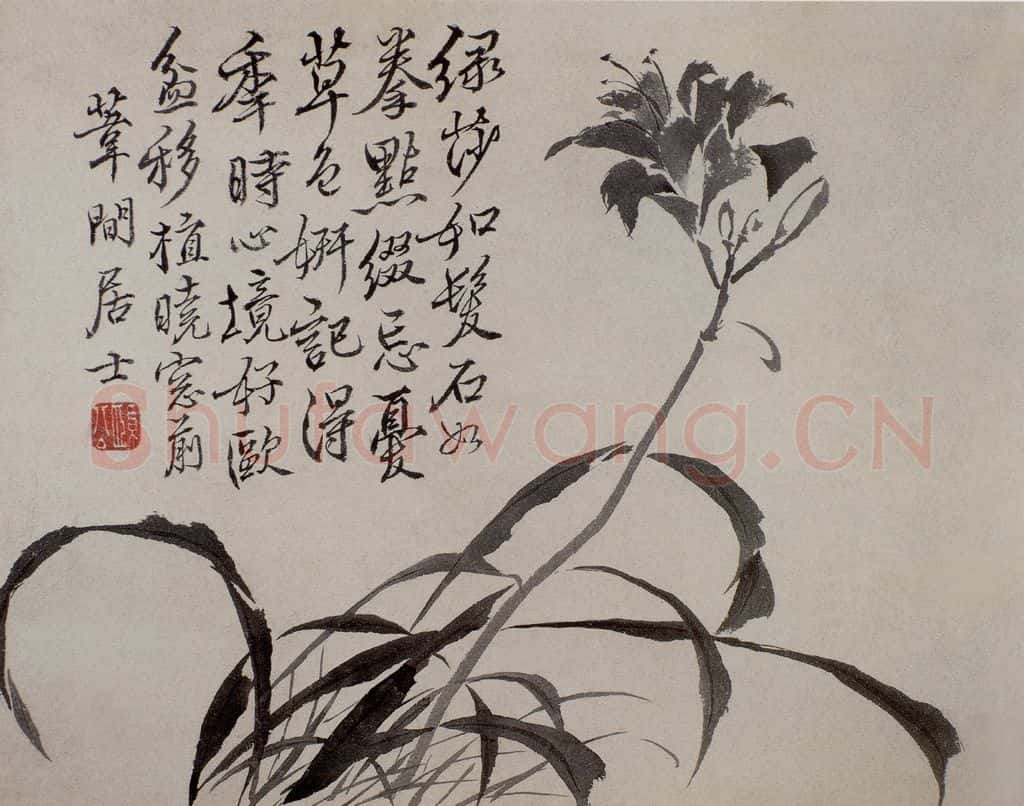 綠莎如髮石如
拳點綴忘憂
草色妍記得
秊時心境好甌
盆移植曉窓前
葦間居士
頤公
Shufawang.CN